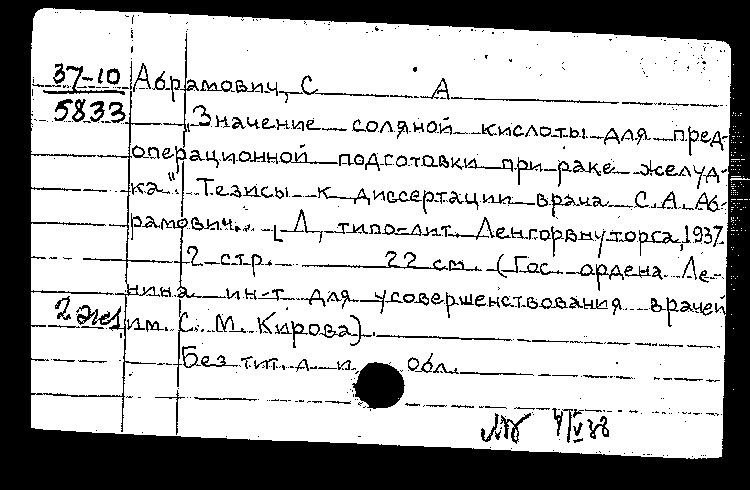 37-10 Абрамович, С А
5833 „Значение соляной кислоты для пред-
операционной подготовки при раке желуд-
ка". Тезисы к диссертации врача С.А. Аб-
рамович. [Л, типо-лит. Ленгорвнуторга, 1937.
2 стр. 22 см. (Гос. ордена Ле-
нина ин-т для усовершенствования врачей
2 экз. им. С. М. Кирова).
Без тит. л. и обл.
4/V 38